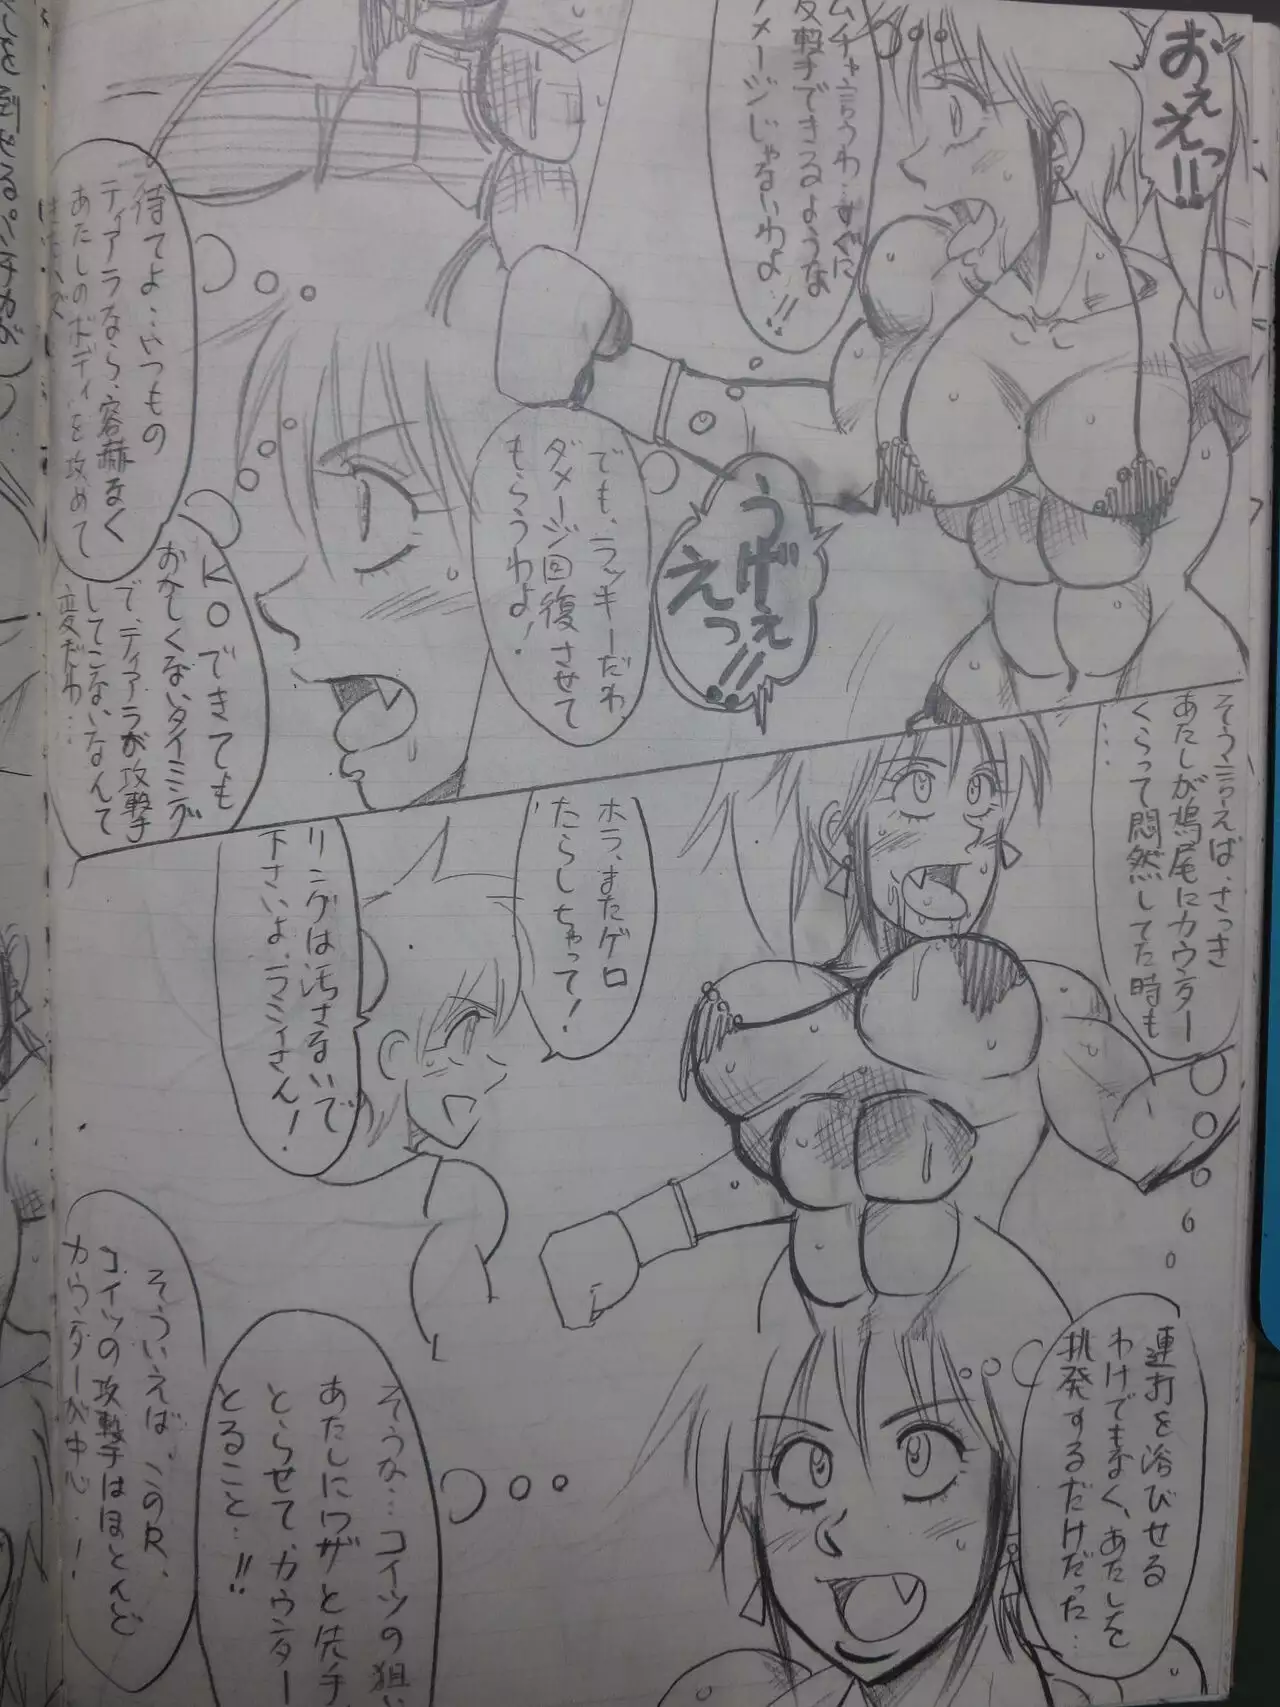 おぇ
えっ!!
ムチャ言うわ…すぐに
反撃できるような
メージじゃないわよ!!
うげぇ
えっ!!
でも、ラッキーだわ
ダメージ回復させて
もらうわよ!
待てよ…いつもの
ティアラなら、容赦なく
あたしのボディを攻めて
KOできても
おかしくないタイミング
で、ティアラが攻撃
してこないなんて
変だわ…
そう言えば、さっき
あたしが鳩尾にカウンター
くらって悶然してた時も
…
連打を浴びせる
わけでもなく、あたしを
挑発するだけだった…
ホラ、またゲロ
たらしちゃって!
リングは汚さないで
下さいよ、ラミィさん!
そうか…コイツの狙い
あたしにワザと先手
とらせて、カウンター
とること…!!
そういえば、このR、
コイツの攻撃はほとんど
カウンターが中心…!